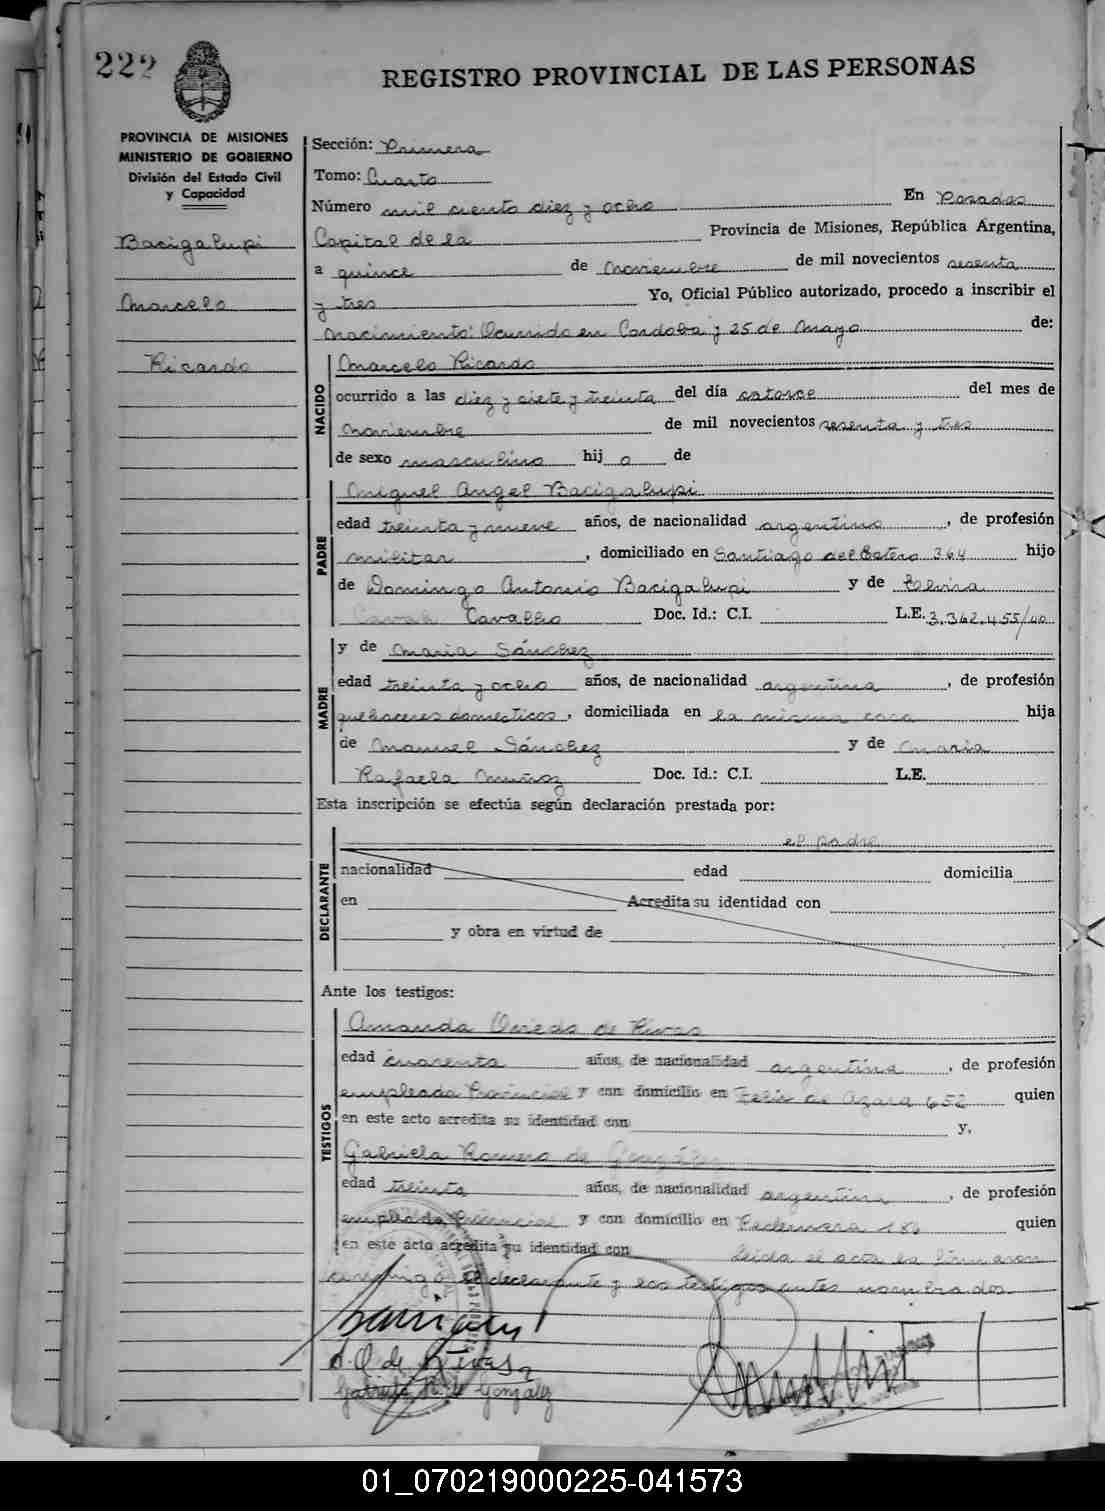 222
REGISTRO PROVINCIAL DE LAS PERSONAS
PROVINCIA DE MISIONES
MINISTERIO DE GOBIERNO
División del Estado Civil
y Capacidad
Bacigalupi
Marcelo
Ricardo
Sección: Primera
Tomo: Cuarto
Número mil ciento diez y ocho En Posadas
Capital de la Provincia de Misiones, República Argentina,
a quince de Noviembre de mil novecientos sesenta
y tres Yo, Oficial Público autorizado, procedo a inscribir el
Nacimiento: Ocurrido en Cordoba y 25 de Mayo de:
NACIDO
Marcelo Ricardo
ocurrido a las diez y siete y treinta del día catorce del mes de
Noviembre de mil novecientos sesenta y tres
de sexo masculino hij o de
PADRE
Miguel Angel Bacigalupi
edad treinta y nueve años, de nacionalidad argentino, de profesión
militar, domiciliado en Santiago del Estero 364 hijo
de Domingo Antonio Bacigalupi y de Elvira
Cavallo Doc. Id.: C.I. L.E. 3.362.455/40
MADRE
y de Maria Sánchez
edad treinta y ocho años, de nacionalidad argentina, de profesión
quehaceres domesticos, domiciliada en la misma casa hija
de Manuel Sánchez y de Maria
Rafaela Muñoz Doc. Id.: C.I. L.E.
Esta inscripción se efectúa según declaración prestada por:
DECLARANTE
el padre
nacionalidad edad domicilia
en Acredita su identidad con
y obra en virtud de
Ante los testigos:
TESTIGOS
Amanda Oviedo de Rivas
edad cuarenta años, de nacionalidad argentina, de profesión
empleada Provincial y con domicilio en Felix de Azara 652 quien
en este acto acredita su identidad con y,
Gabriela Romero de González
edad treinta años, de nacionalidad argentina, de profesión
empleada Provincial y con domicilio en quien
en este acto acredita su identidad con leida el acta la firmaron
conmigo el declarante y los testigos antes nombrados
A.O de Rivas
Gabriela R. de González
01_070219000225-041573